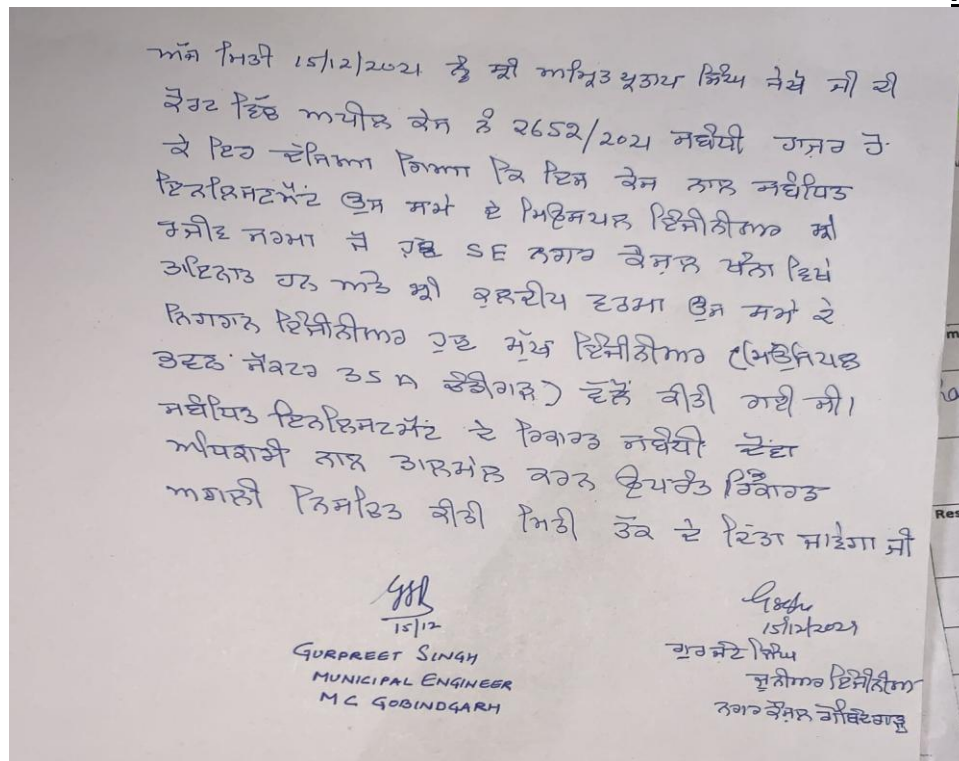 ਅੱਜ ਮਿਤੀ 15/12/2021 ਨੂੰ ਸ਼੍ਰੀ ਅਮ੍ਰਿਤ ਪ੍ਰਤਾਪ ਸਿੰਘ ਸੇਖੋਂ ਜੀ ਦੀ
ਕੋਰਟ ਵਿੱਚ ਅਪੀਲ ਕੇਸ ਨੰ 2652/2021 ਸਬੰਧੀ ਹਾਜ਼ਰ ਹੋ
ਕੇ ਇਹ ਦੱਸਿਆ ਗਿਆ ਕਿ ਇਸ ਕੇਸ ਨਾਲ ਸਬੰਧਿਤ
ਇਨਲਿਸਟਮੈਂਟ ਉਸ ਸਮੇਂ ਦੇ ਮਿਉਂਸਪਲ ਇੰਜੀਨੀਅਰ ਸ਼੍ਰੀ
ਸ਼ਰਮਾ ਜੋ ਹੁਣ SE ਨਗਰ ਕੌਂਸਲ ਖੰਨਾ ਵਿਖੇ
ਤਾਇਨਾਤ ਹਨ ਅਤੇ ਸ਼੍ਰੀ ਕੁਲਦੀਪ ਵਰਮਾ ਉਸ ਸਮੇਂ ਦੇ
ਨਿਗਰਾਨ ਇੰਜੀਨੀਅਰ ਹੁਣ ਮੁੱਖ ਇੰਜੀਨੀਅਰ (ਮਿਉਂਸਿਪਲ
ਭਵਨ ਸੈਕਟਰ 35 A ਚੰਡੀਗੜ) ਵੱਲੋਂ ਕੀਤੀ ਗਈ ਸੀ।
ਸਬੰਧਿਤ ਇਨਲਿਸਟਮੈਂਟ ਦੇ ਰਿਕਾਰਡ ਸਬੰਧੀ ਦੋਵਾਂ
ਅਧਿਕਾਰੀ ਨਾਲ ਤਾਲਮੇਲ ਕਰਨ ਉਪਰੰਤ ਰਿਕਾਰਡ
ਅਗਲੀ ਨਿਸਚਿਤ ਕੀਤੀ ਮਿਤੀ ਤੱਕ ਦੇ ਦਿੱਤਾ ਜਾਵੇਗਾ ਜੀ
15/12
GURPREET SINGH
MUNICIPAL ENGINEER
MC GOBINDGARH
15/12/2021
ਗੁਰਜੰਟ ਸਿੰਘ
ਜੂਨੀਅਰ ਇੰਜੀਨੀਅਰ
ਨਗਰ ਕੌਂਸਲ ਗੋਬਿੰਦਗੜ੍ਹ
Res